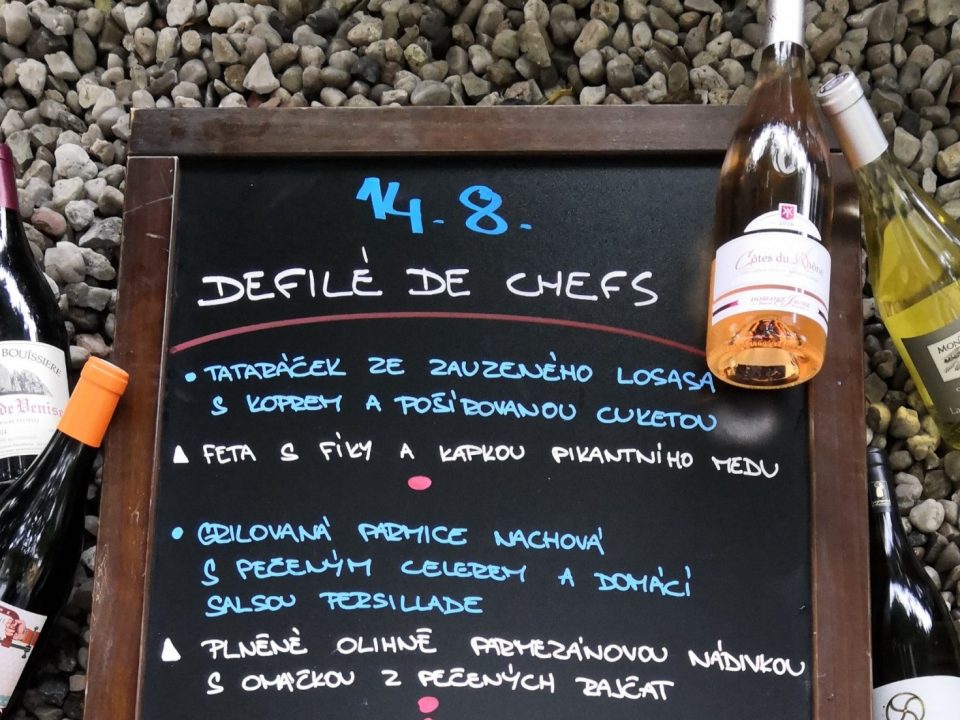 14. 8.
DEFILÉ DE CHEFS
• TATARÁČEK ZE ZAUZENÉHO LOSASA
S KOPREM A POŠÍROVANOU CUKETOU
▲ FETA S FÍKY A KAPKOU PIKANTNÍHO MEDU
• GRILOVANÁ PARMICE NACHOVÁ
S PEČENÝM CELEREM A DOMÁCÍ
SALSOU PERSILLADE
▲ PLNĚNÉ OLIHNĚ PARMEZÁNOVOU NÁDIVKOU
S OMÁČKOU Z PEČENÝCH RAJČAT
Côtes du Rhône
BOUÏSSIERE
de Venise
MON
La